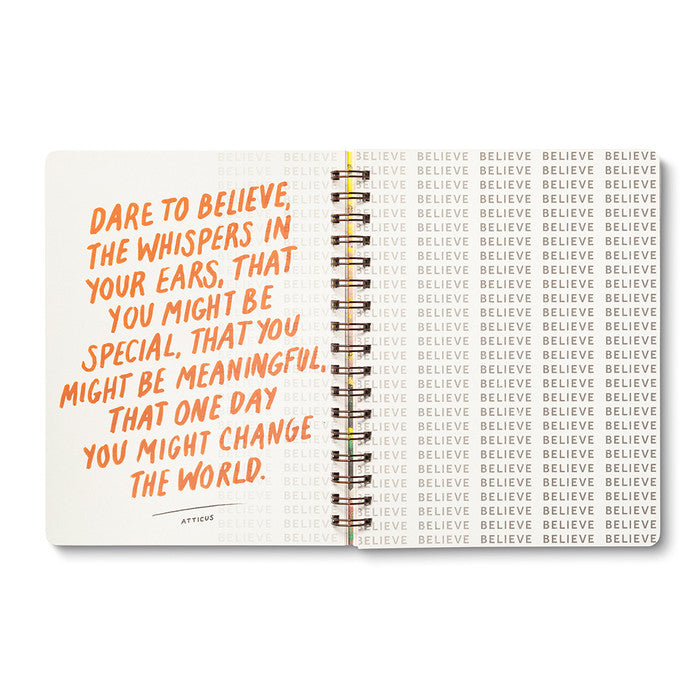 DARE TO BELIEVE,
THE WHISPERS IN
YOUR EARS, THAT
YOU MIGHT BE
SPECIAL, THAT YOU
MIGHT BE MEANINGFUL,
THAT ONE DAY
YOU MIGHT CHANGE
THE WORLD.
ATTICUS
BELIEVE BELIEVE
BELIEVE BELIEVE BELIEVE BELIEVE BELIEVE
BELIEVE BELIEVE BELIEVE BELIEVE BELIEVE
BELIEVE BELIEVE BELIEVE BELIEVE BELIEVE
BELIEVE BELIEVE BELIEVE BELIEVE BELIEVE
BELIEVE BELIEVE BELIEVE BELIEVE BELIEVE
BELIEVE BELIEVE BELIEVE BELIEVE BELIEVE
BELIEVE BELIEVE BELIEVE BELIEVE BELIEVE
BELIEVE BELIEVE BELIEVE BELIEVE BELIEVE
BELIEVE BELIEVE BELIEVE BELIEVE BELIEVE
BELIEVE BELIEVE BELIEVE BELIEVE BELIEVE
BELIEVE BELIEVE BELIEVE BELIEVE BELIEVE
BELIEVE BELIEVE BELIEVE BELIEVE BELIEVE
BELIEVE BELIEVE BELIEVE BELIEVE BELIEVE
BELIEVE BELIEVE BELIEVE BELIEVE BELIEVE
BELIEVE BELIEVE BELIEVE BELIEVE BELIEVE
BELIEVE BELIEVE BELIEVE BELIEVE BELIEVE
BELIEVE BELIEVE BELIEVE BELIEVE BELIEVE
BELIEVE BELIEVE BELIEVE BELIEVE BELIEVE
BELIEVE BELIEVE BELIEVE BELIEVE BELIEVE
BELIEVE BELIEVE BELIEVE BELIEVE BELIEVE
BELIEVE BELIEVE BELIEVE BELIEVE BELIEVE
BELIEVE BELIEVE BELIEVE BELIEVE BELIEVE
BELIEVE BELIEVE BELIEVE BELIEVE BELIEVE
BELIEVE BELIEVE BELIEVE BELIEVE BELIEVE